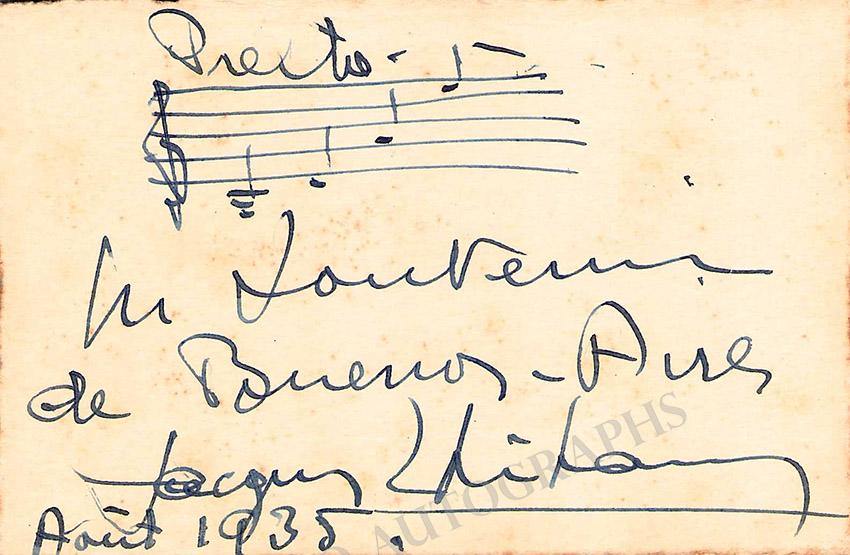 Presto.
En Souvenir
de Buenos-Aires
Jacques Thibaud
Août 1935.
AUTOGRAPHS